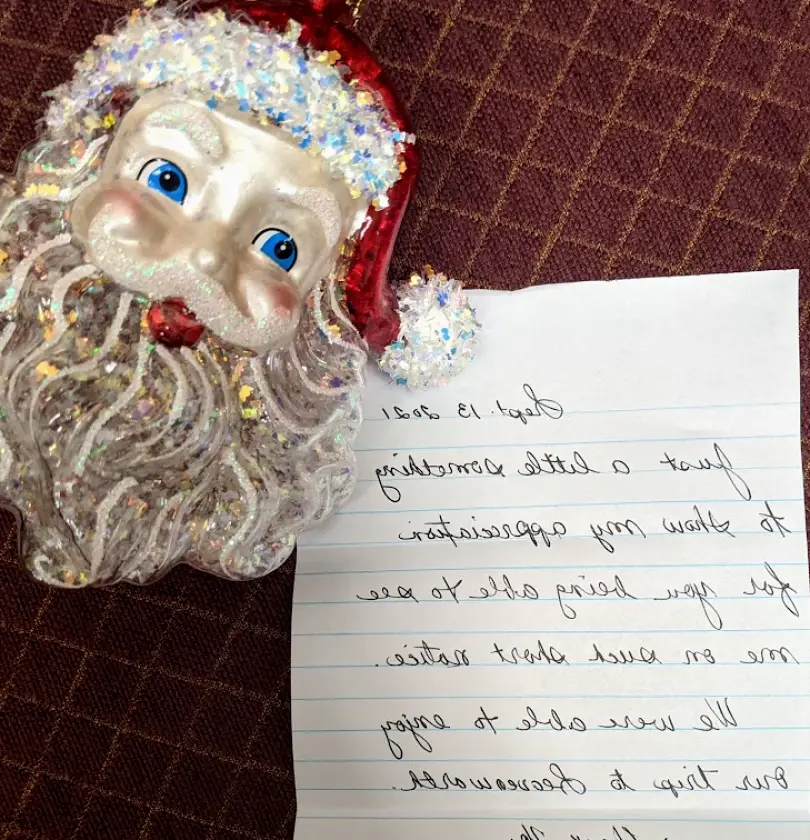 Sept. 13 2021
Just a little something
to show my appreciation
for you being able to see
me on such short notice.
We were able to enjoy
our trip to Leavenworth.